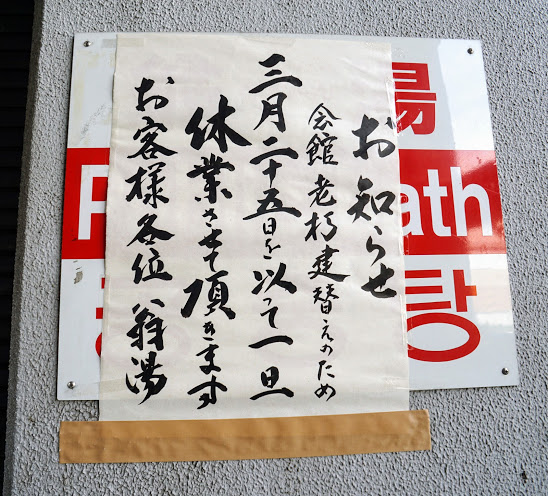 お知らせ
会館老朽建替えのため
三月二十五日を以って一旦
休業させて頂きます
お客様各位 翁湯
湯
P ath
탕